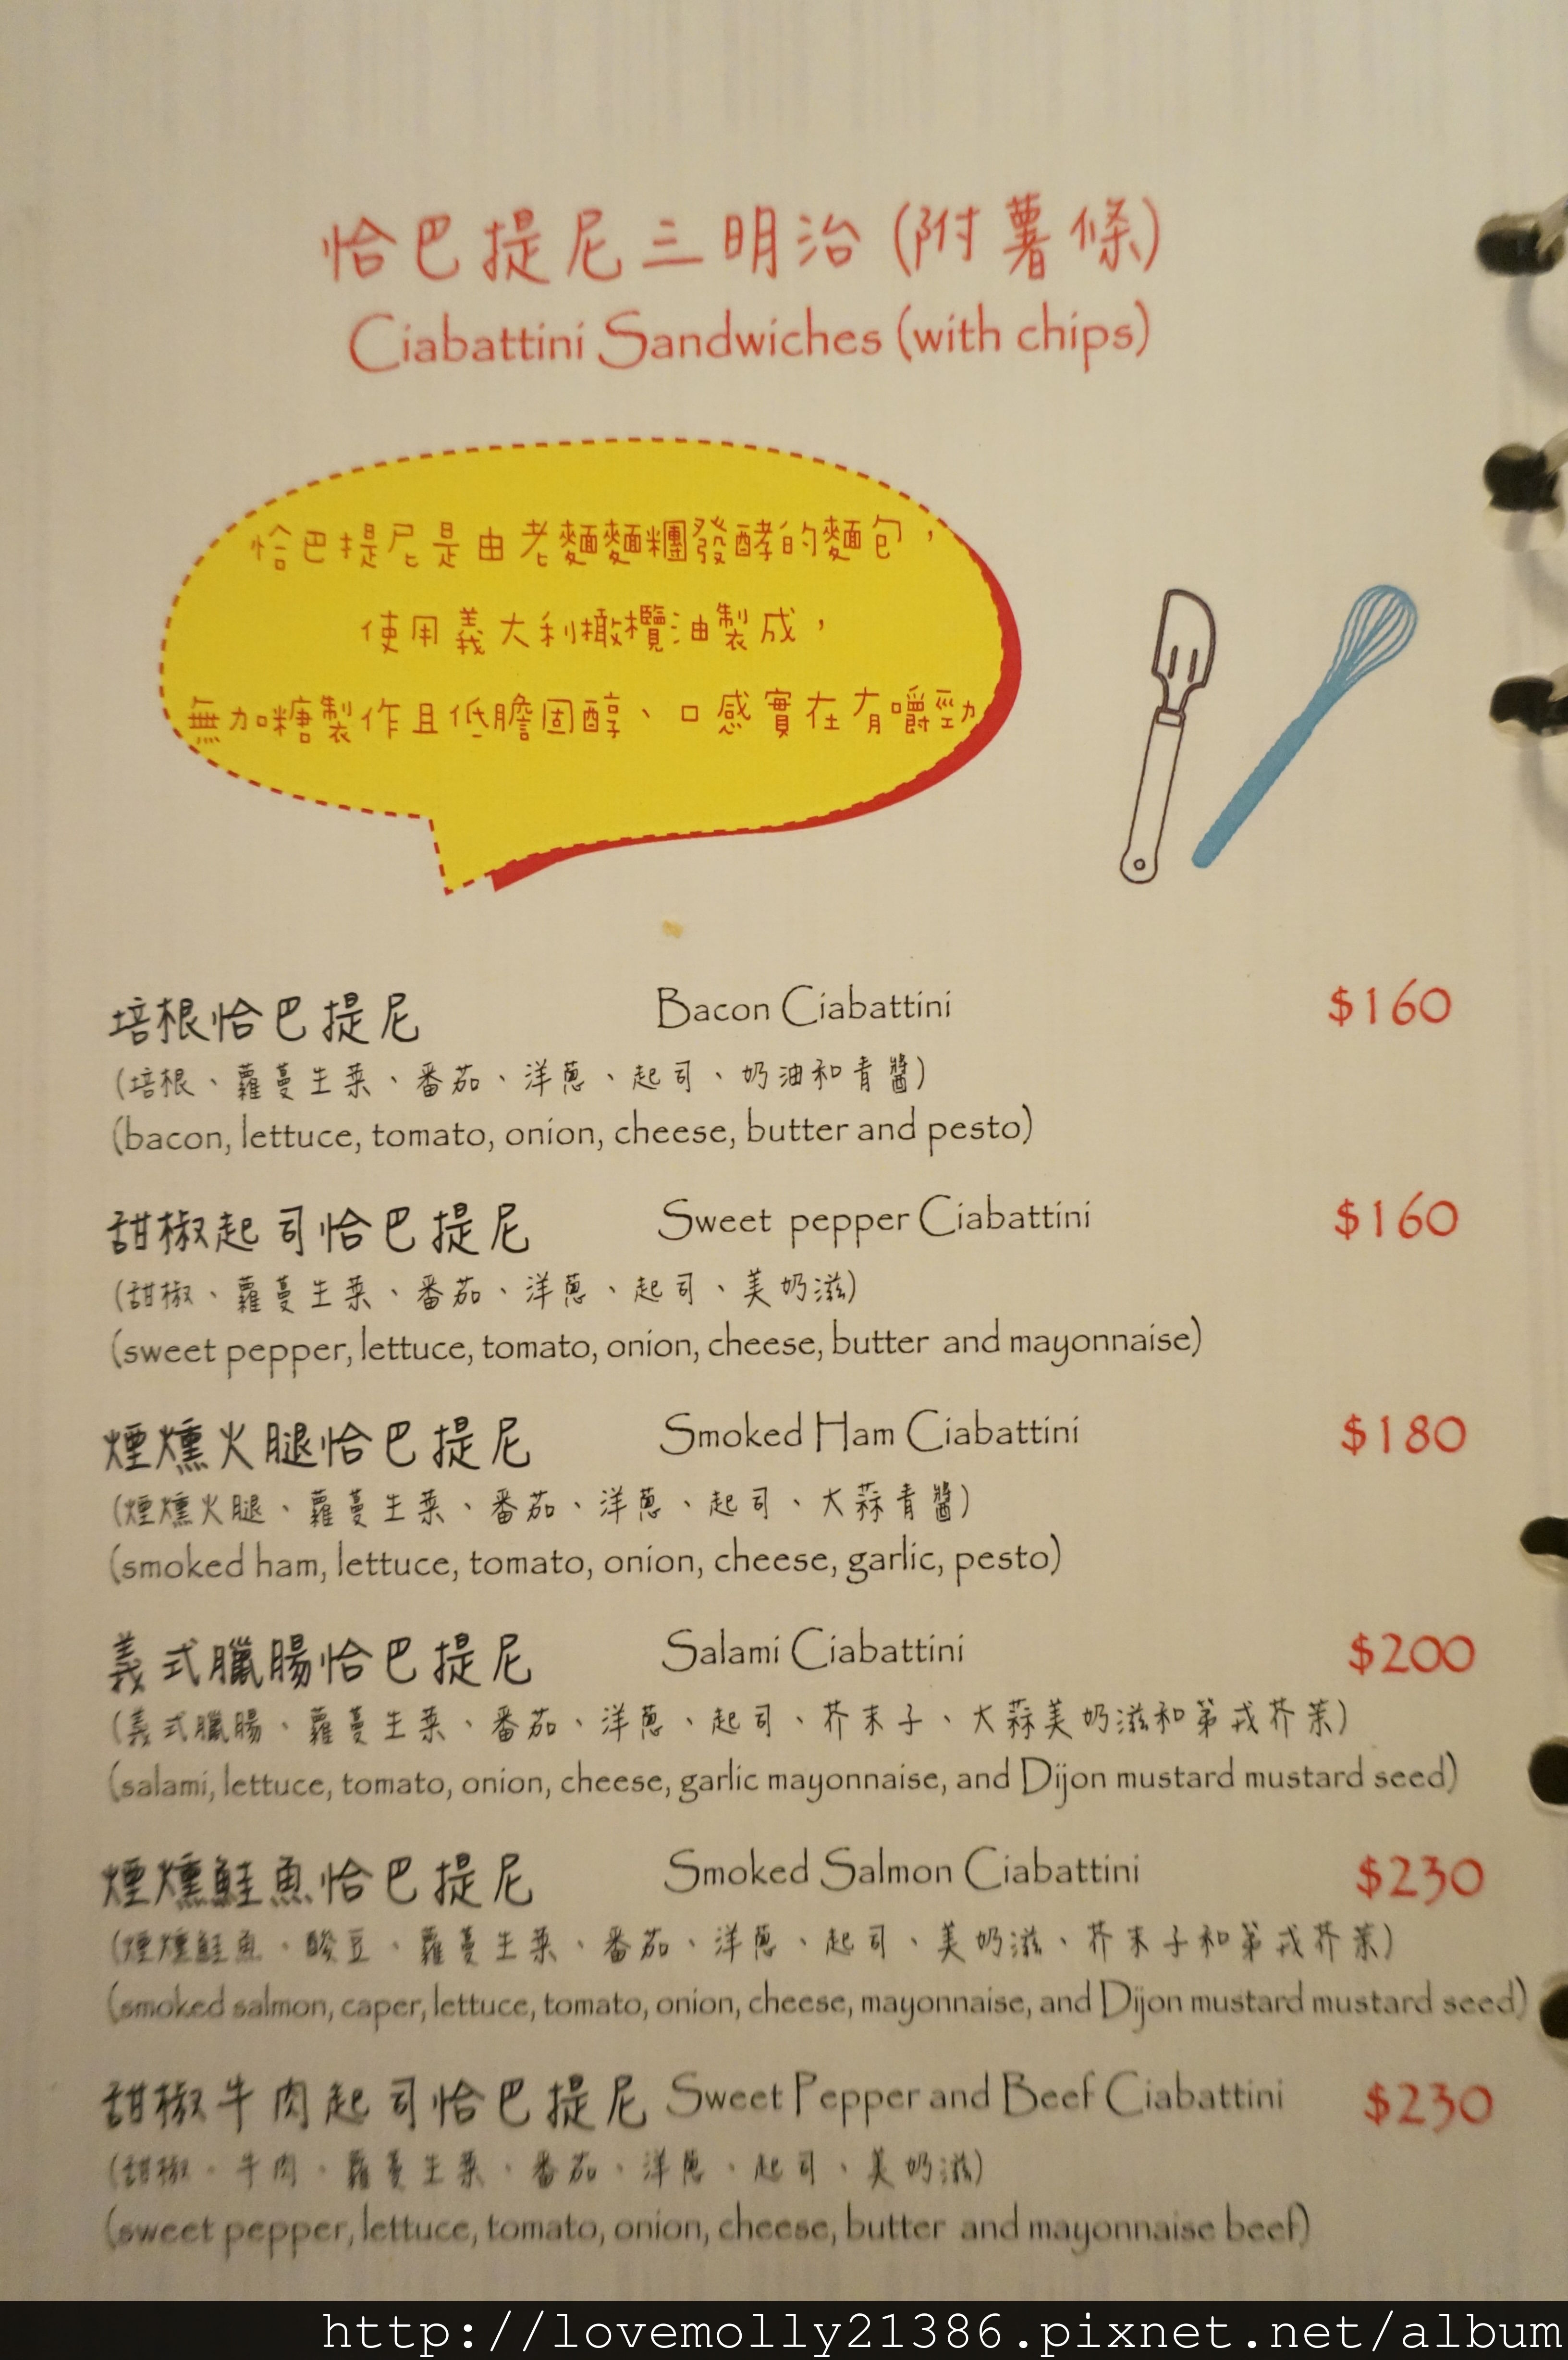 恰巴提尼三明治(附薯條)
Ciabattini Sandwiches (with chips)
恰巴提尼是由老麵麵糰發酵的麵包，
使用義大利橄欖油製成，
無加糖製作且低膽固醇、口感實在有嚼勁
培根恰巴提尼 Bacon Ciabattini $160
(培根、蘿蔓生菜、番茄、洋蔥、起司、奶油和青醬)
(bacon, lettuce, tomato, onion, cheese, butter and pesto)
甜椒起司恰巴提尼 Sweet pepper Ciabattini $160
(甜椒、蘿蔓生菜、番茄、洋蔥、起司、美奶滋)
(sweet pepper, lettuce, tomato, onion, cheese, butter and mayonnaise)
煙燻火腿恰巴提尼 Smoked Ham Ciabattini $180
(煙燻火腿、蘿蔓生菜、番茄、洋蔥、起司、大蒜青醬)
(smoked ham, lettuce, tomato, onion, cheese, garlic, pesto)
義式臘腸恰巴提尼 Salami Ciabattini $200
(義式臘腸、蘿蔓生菜、番茄、洋蔥、起司、芥末子、大蒜美奶滋和第戎芥茉)
(salami, lettuce, tomato, onion, cheese, garlic mayonnaise, and Dijon mustard mustard seed)
煙燻鮭魚恰巴提尼 Smoked Salmon Ciabattini $230
(煙燻鮭魚、酸豆、蘿蔓生菜、番茄、洋蔥、起司、美奶滋、芥末子和第戎芥茉)
(smoked salmon, caper, lettuce, tomato, onion, cheese, mayonnaise, and Dijon mustard mustard seed)
甜椒牛肉起司恰巴提尼 Sweet Pepper and Beef Ciabattini $230
(甜椒、牛肉、蘿蔓生菜、番茄、洋蔥、起司、美奶滋)
(sweet pepper, lettuce, tomato, onion, cheese, butter and mayonnaise beef)
http://lovemolly21386.pixnet.net/album